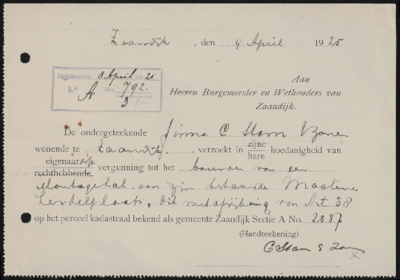 Zaandijk, den 4 April 1925
Ingekomen 8 April 25
La A 792.
3
Aan
Heeren Burgemeester en Wethouders van
Zaandijk.
De ondergeteekende Firma C. Stam & Zonen
wonende te Zaandijk, verzoekt in zijne hoedanigheid van
hare
eigenaar
rechthebbende, vergunning tot het bouwen van een
Montagehal aan zijn bestaande Machine
herstelplaats, met afwijking van Art. 38
op het perceel kadastraal bekend als gemeente Zaandijk Sectie A No. 2887
(Handteekening)
C Stam & Zonen